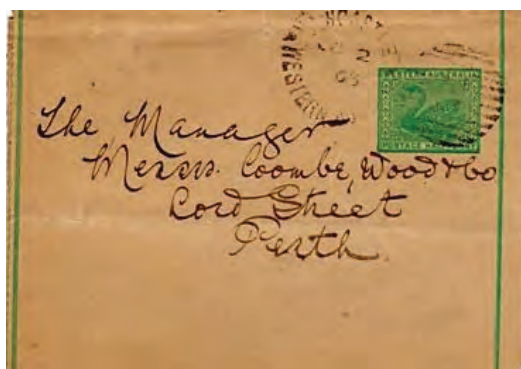 WESTERN AUSTRALIA
POSTAGE HALFPENNY
The Manager
Messrs. Coombe, Wood & Co
Lord Street
Perth.